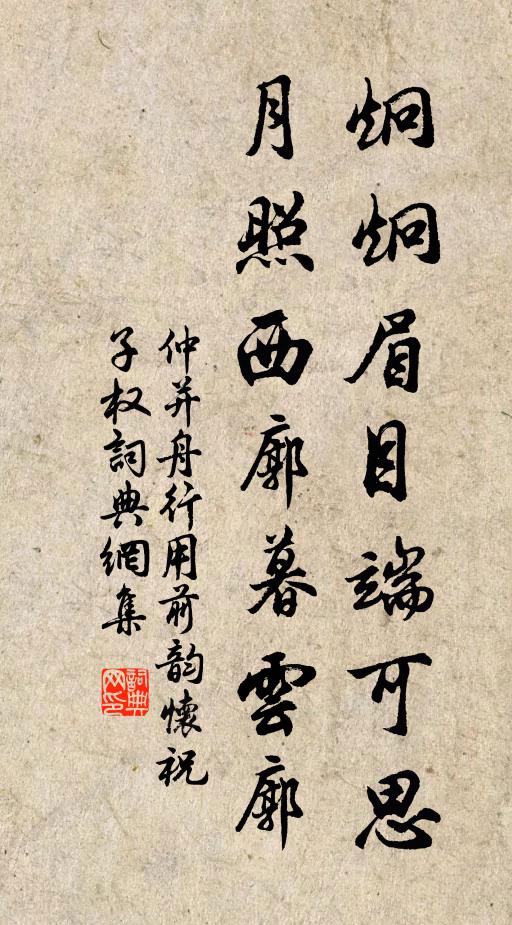 炯炯眉目端可思
月照西廓暮雲廓
仲并舟行用前韵懷祝
子权詞典網集
詞典
网印